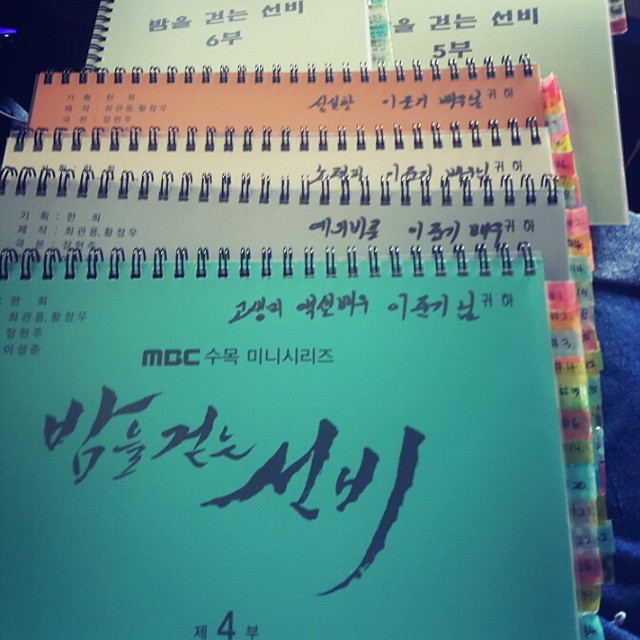 밤을 걷는 선비
6부
을 걷는 선비
5부
기 획 : 한 희
제 작 : 최관용,황창우
극 본 : 장현주
신실한 이준기 배우님 귀 하
획 : 한 희
이준기 배우님 귀 하
기 획 : 한 희
제 작 : 최관용,황창우
극 본 : 장현주
예의바른 이준기 배우 귀 하
: 한 희
최관용,황창우
장현주
이성준
고생의 액션배우 이준기 님 귀 하
MBC 수목 미니시리즈
밤을 걷는 선비
제 4 부